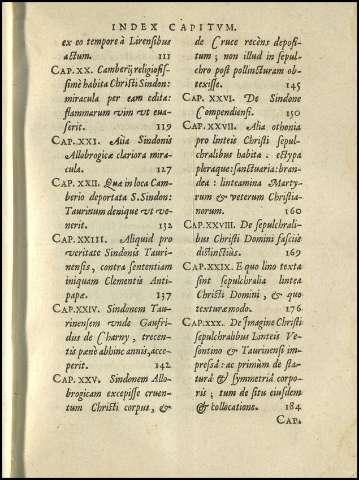 INDEX CAPITVM.
ex eo tempore à Lirensibus
actum. 111
CAP. XX. Camberij religiosis-
simè habita Christi Sindon:
miracula per eam edita:
flammarum vim vt eua-
serit. 119
CAP. XXI. Alia Sindonis
Allobrogicæ clariora mira-
cula. 127
CAP. XXII. Quæ in loca Cam-
berio deportata S. Sindon:
Taurinum denique vt ve-
nerit. 132
CAP. XXIII. Aliquid pro
veritate Sindonis Tauri-
nensis, contra sententiam
iniquam Clementis Anti-
papæ. 137
CAP. XXIV. Sindonem Tau-
rinensem vnde Gaufri-
dus de Charny, trecen-
tis pæne abhinc annis, acce-
perit. 142
CAP. XXV. Sindonem Allo-
brogicam excepisse cruen-
tum Christi corpus, &
de Cruce recèns deposi-
tum; non illud in sepul-
chro post pollincturam ob-
texisse. 145
CAP. XXVI. De Sindone
Compendiensi. 150
CAP. XXVII. Alia othonia
pro linteis Christi sepul-
chralibus habita: ectypa
pleraque: sanctuaria: bran-
dea: linteamina Marty-
rum & veterum Christia-
norum. 160
CAP. XXVIII. De sepulchrali-
bus Christi Domini fasciis
distinctiùs. 169
CAP. XXIX. E quo lino texta
sint sepulchralia lintea
Christi Domini, & quo
texturæ modo. 176
CAP. XXX. De Imagine Christi
sepulchralibus Linteis Ve-
sontino & Taurinensi im-
pressâ: ac primùm de sta-
turâ & symmetriâ corpo-
ris; tum de situ eiusdem
& collocatione. 184
CAP.